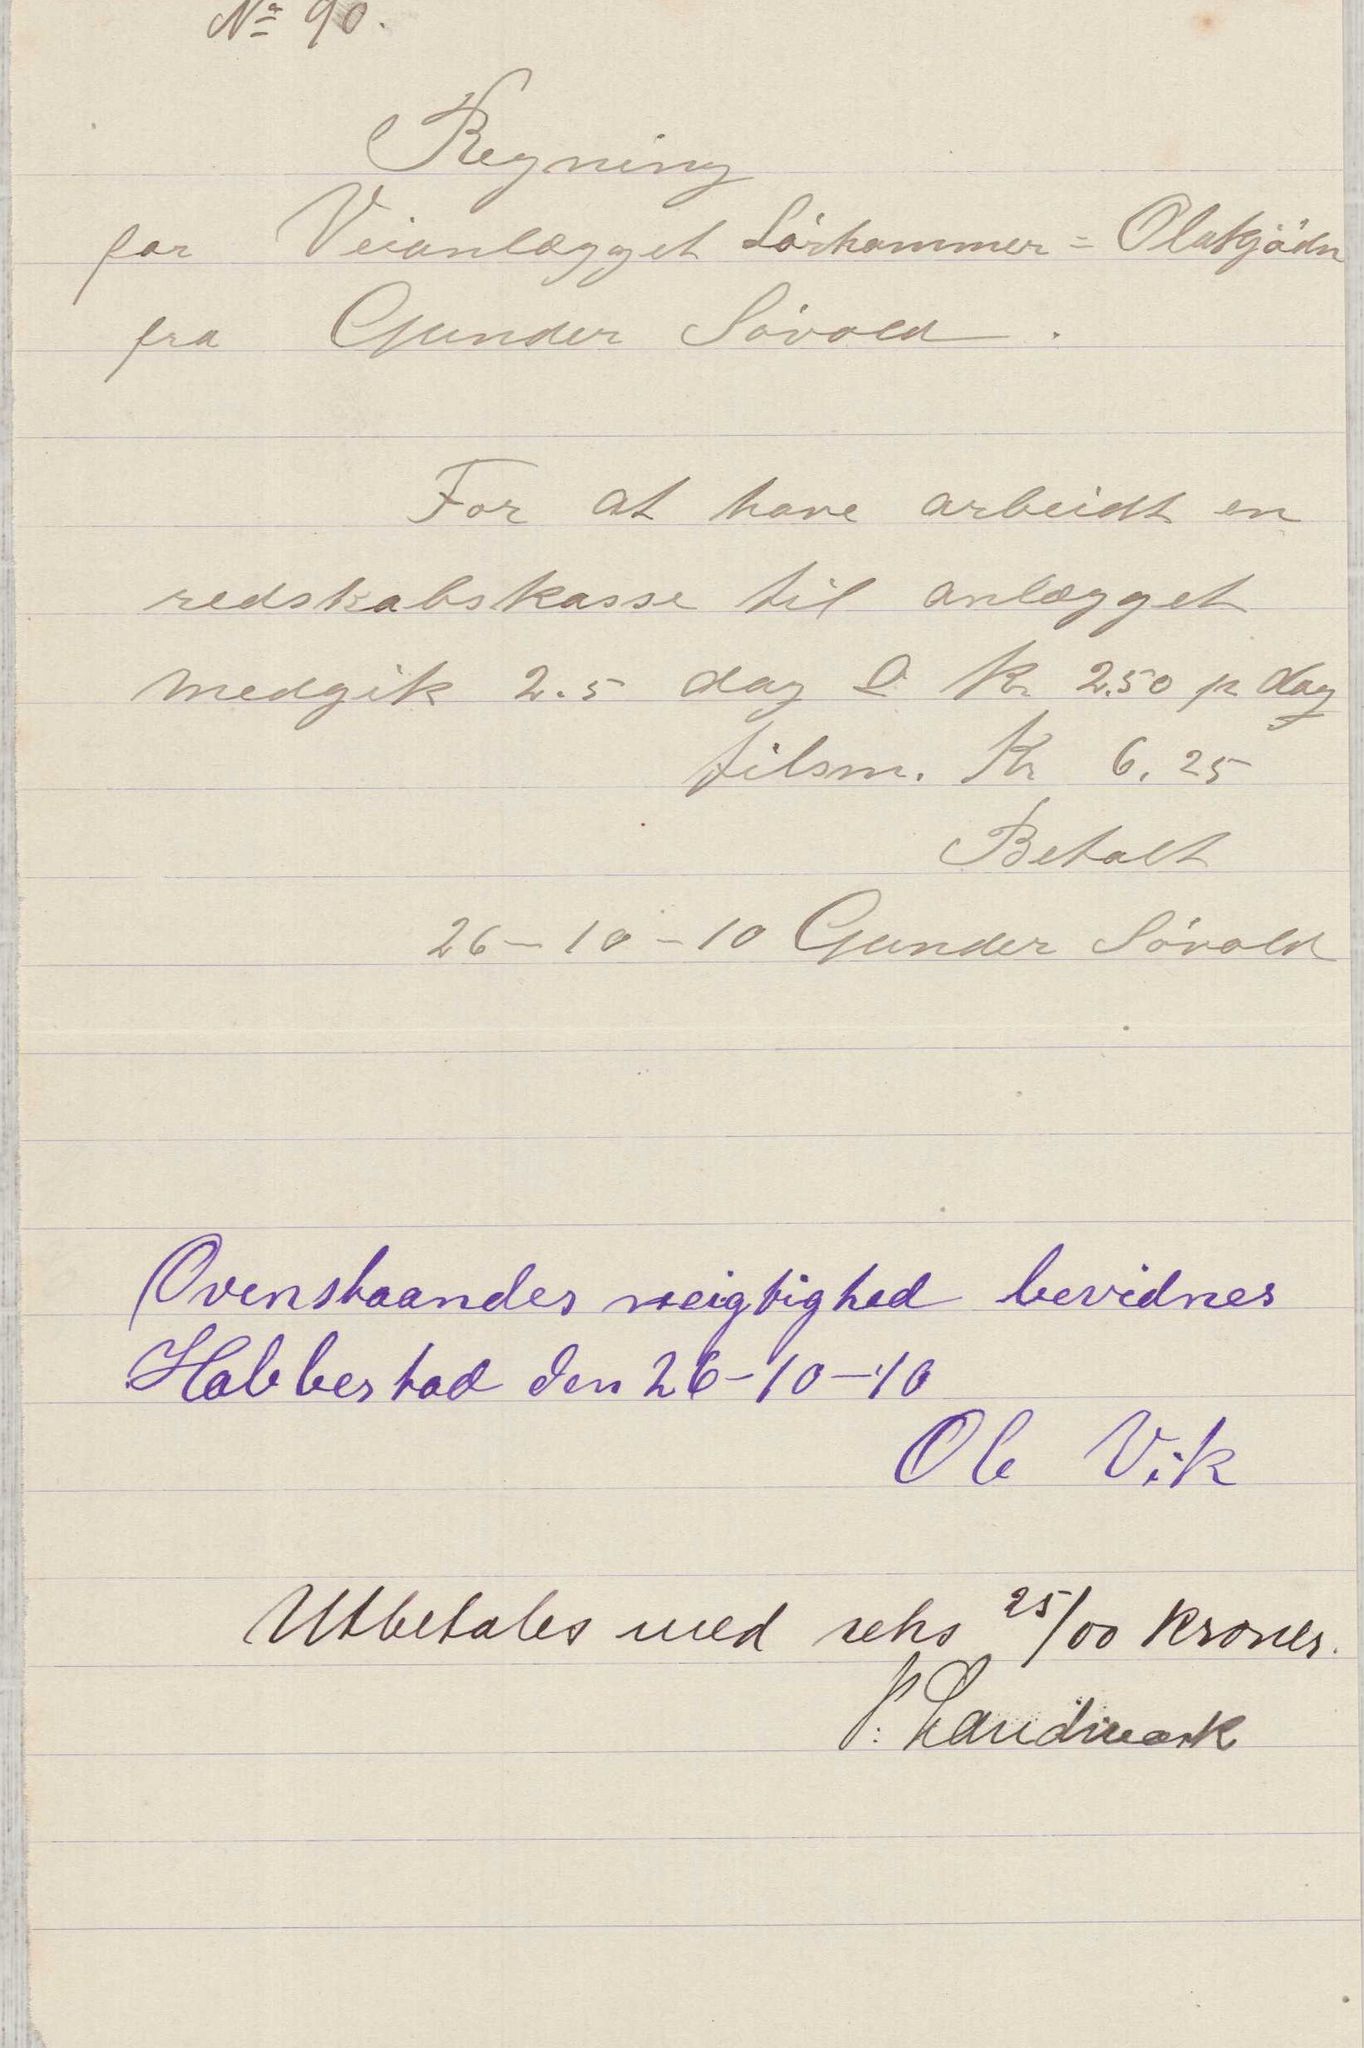 No 90.
Regning
for Veianlægget Sörhammer = Olatjödn
fra Gunder Sövold.
For at have arbeidt en
redskabskasse til anlægget
medgik 2.5 dag a Kr 2.50 pr dag
tilsm. Kr 6.25
Betalt
26-10-10 Gunder Sövold
Ovenstaandes rigtighed bevidnes
Habbestad den 26-10-10
Ole Vik
Utbetales med seks 25/00 Kroner.
P. Landmark